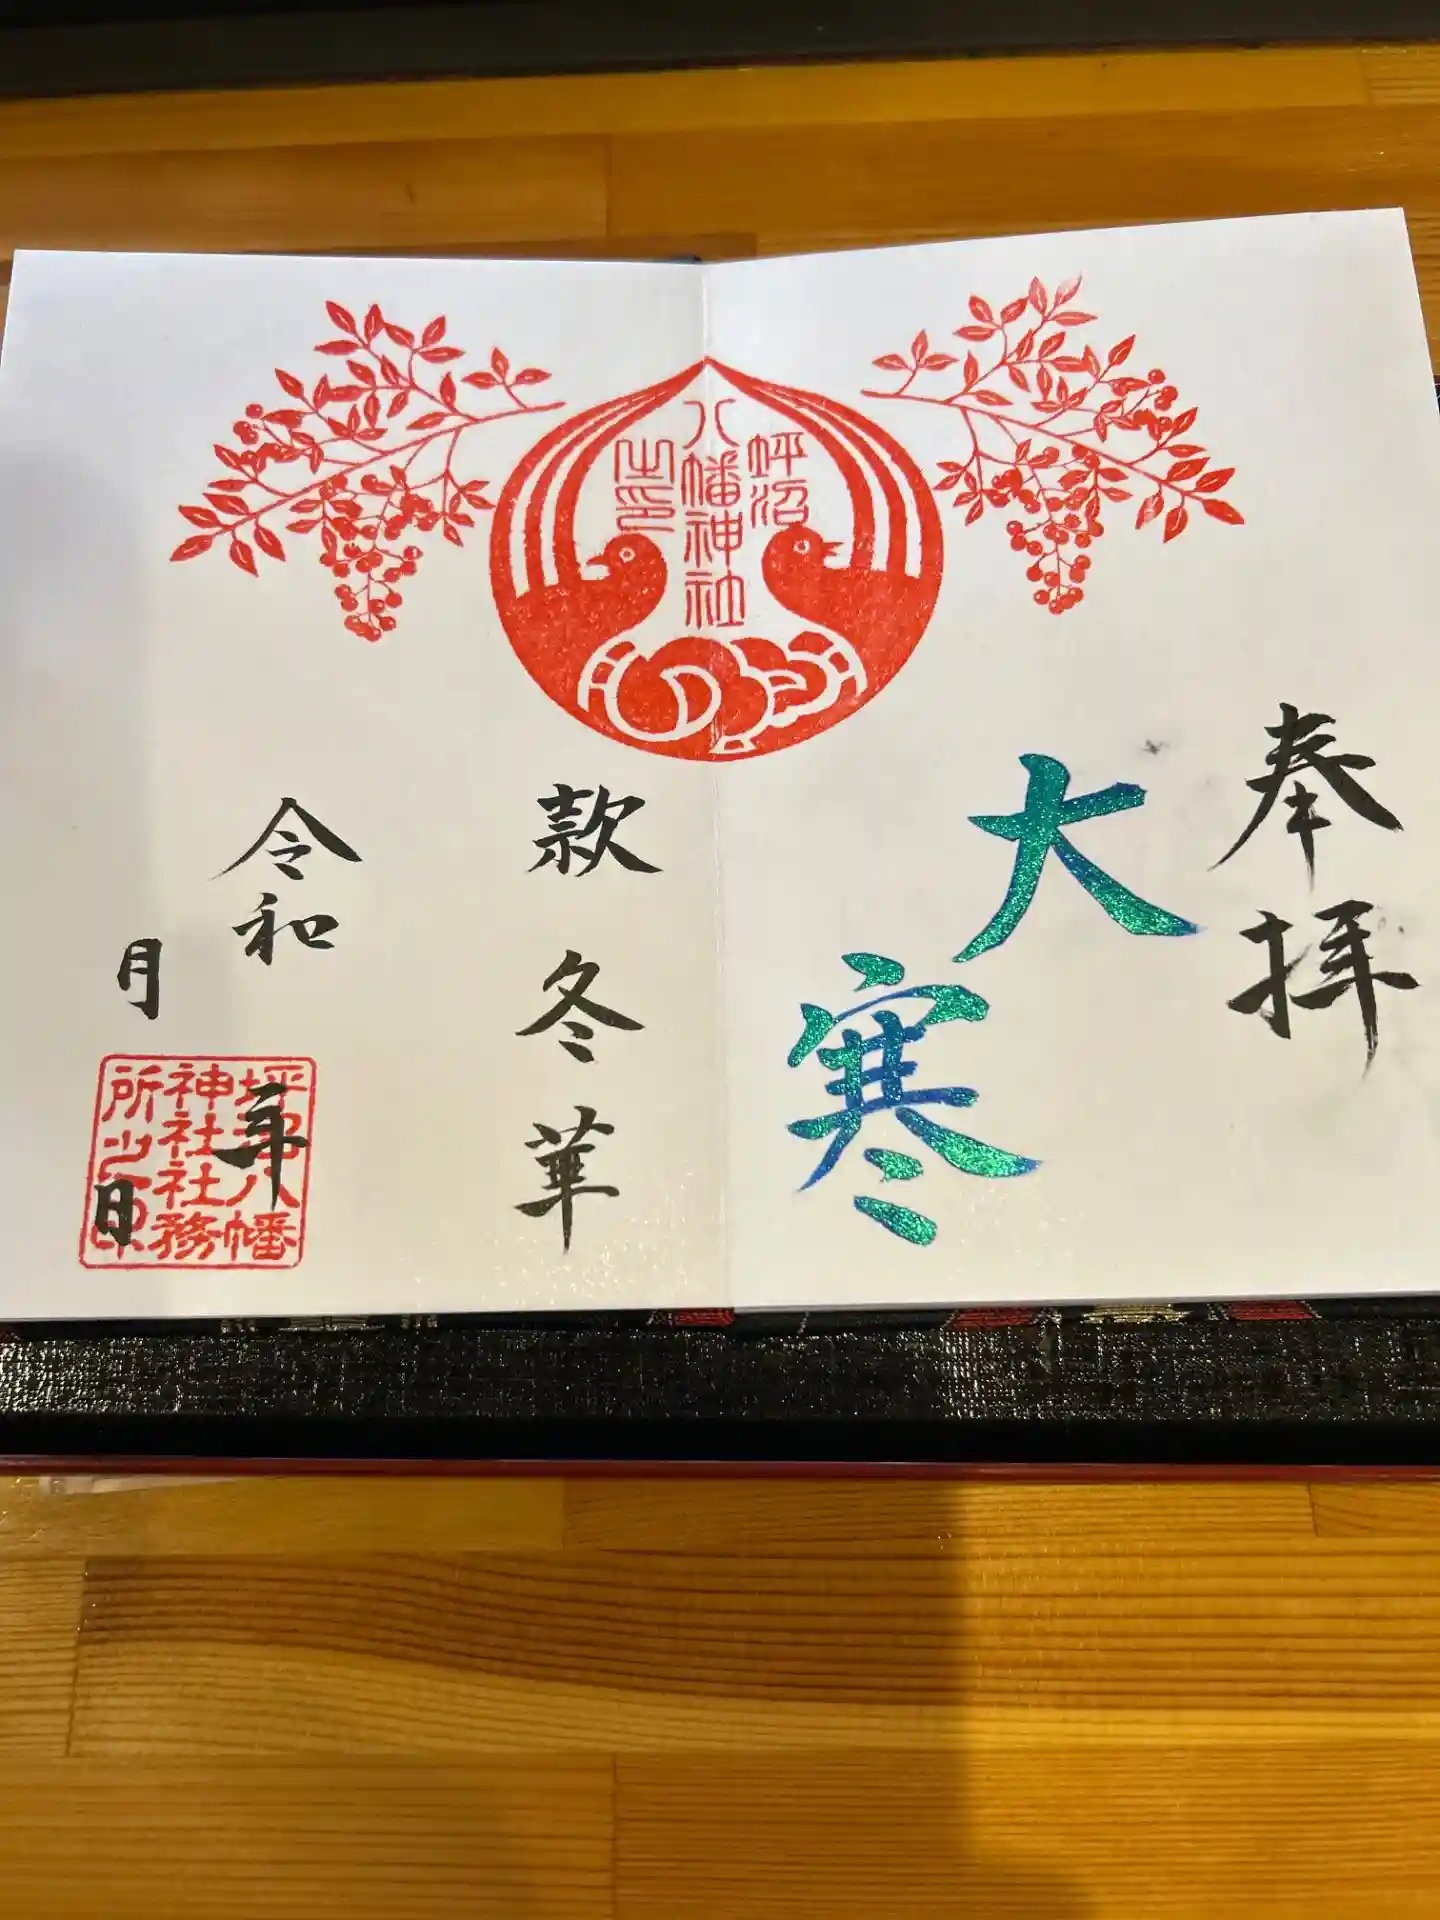 奉拝
大寒
坪沼
八幡神社
之印
款冬華
令和 年
月 日
坪沼八幡
神社社務
所之印